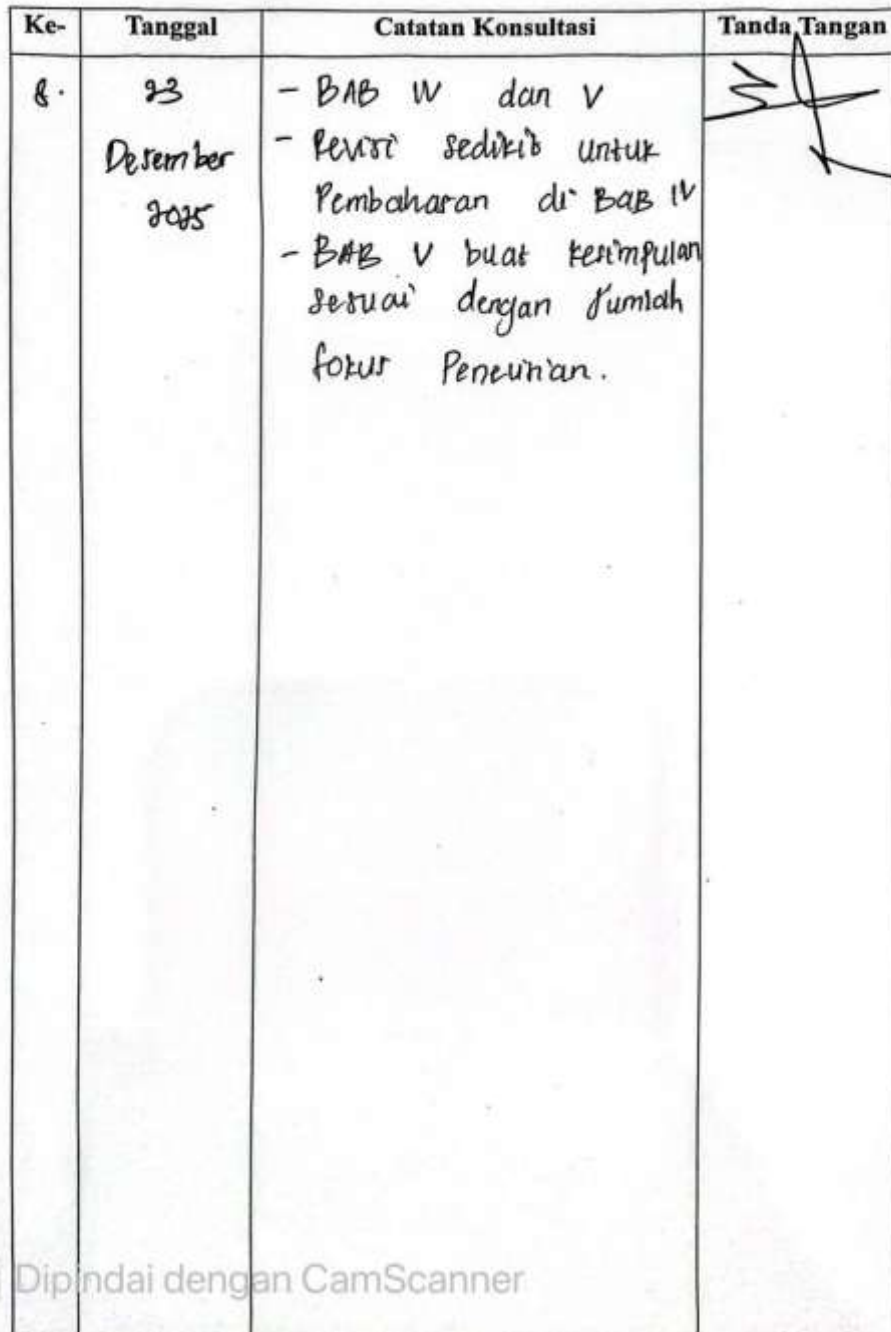 Ke- Tanggal Catatan Konsultasi Tanda Tangan
8. 23 - BAB IV dan V
Desember - Revisi sedikit untuk
2025 Pembahasan di BAB IV
- BAB V buat kesimpulan
sesuai dengan Jumlah
fokus Penelitian.
Dipindai dengan CamScanner